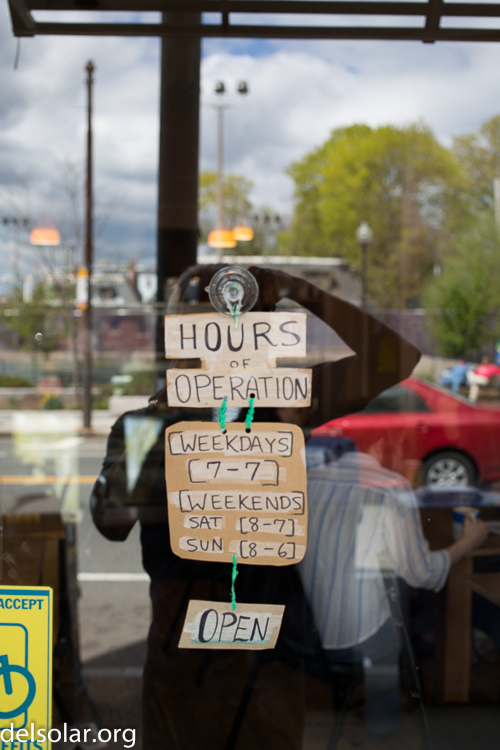 HOURS
OF
OPERATION
WEEKDAYS
[7-7]
WEEKENDS
SAT [8-7]
SUN [8-6]
OPEN
ACCEPT
delsolar.org